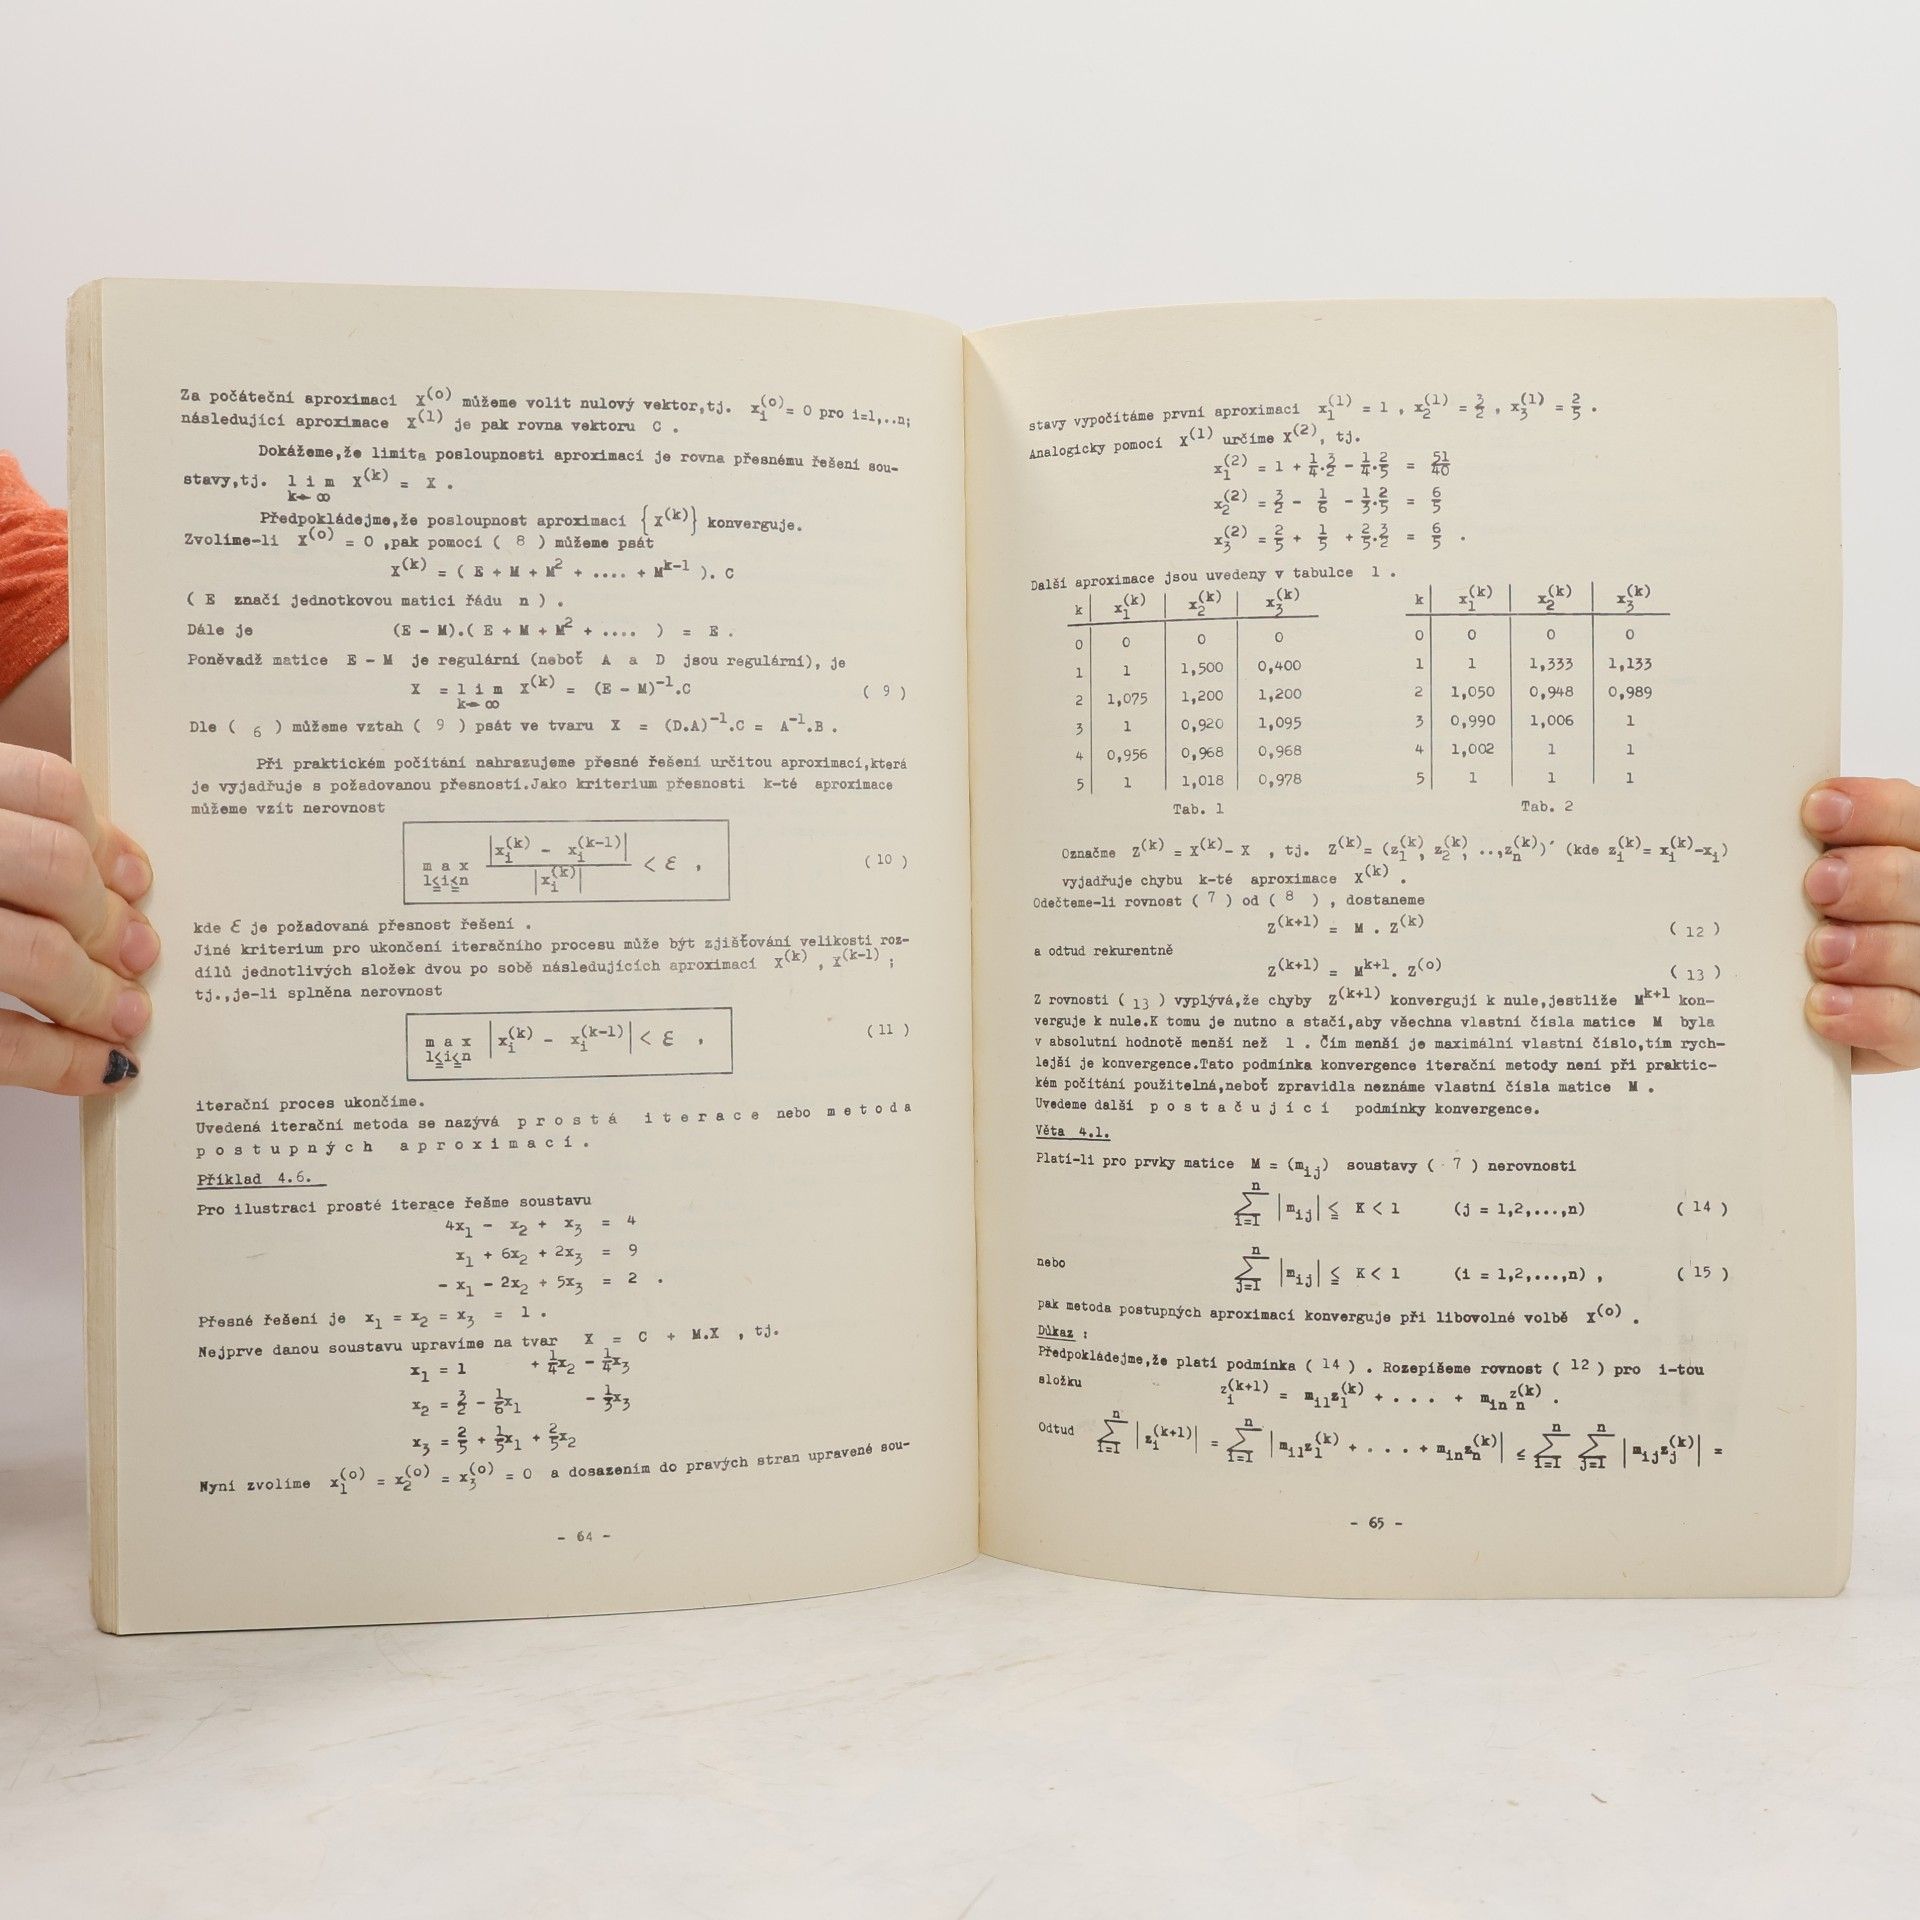 Za počáteční aproximaci X^(o) můžeme volit nulový vektor,tj. x_i^(o) = 0 pro i=1,..n;
následující aproximace X^(1) je pak rovna vektoru C .
Dokážeme,že limita posloupnosti aproximací je rovna přesnému řešení sou-
stavy,tj. l i m X^(k) = X .
k→∞
Předpokládejme,že posloupnost aproximací {X^(k)} konverguje.
Zvolíme-li X^(o) = 0 ,pak pomocí ( 8 ) můžeme psát
X^(k) = ( E + M + M^2 + .... + M^k-1 ). C
( E značí jednotkovou matici řádu n ) .
Dále je (E - M).( E + M + M^2 + .... ) = E .
Poněvadž matice E - M je regulární (neboť A a D jsou regulární), je
X = l i m X^(k) = (E - M)^-1.C ( 9 )
k→∞
Dle ( 6 ) můžeme vztah ( 9 ) psát ve tvaru X = (D.A)^-1.C = A^-1.B .
Při praktickém počítání nahrazujeme přesné řešení určitou aproximací,která
je vyjadřuje s požadovanou přesností.Jako kriterium přesnosti k-té aproximace
můžeme vzít nerovnost
m a x |x_i^(k) - x_i^(k-1)| / |x_i^(k)| < ε , ( 10 )
1≦i≦n
kde ε je požadovaná přesnost řešení .
Jiné kriterium pro ukončení iteračního procesu může být zjišťování velikosti roz-
dílů jednotlivých složek dvou po sobě následujících aproximací X^(k) , X^(k-1) ;
tj.,je-li splněna nerovnost
m a x |x_i^(k) - x_i^(k-1)| < ε , ( 11 )
1≦i≦n
iterační proces ukončíme.
Uvedená iterační metoda se nazývá p r o s t á i t e r a c e nebo m e t o d a
p o s t u p n ý c h a p r o x i m a c í .
Příklad 4.6.
Pro ilustraci prosté iterace řešme soustavu
4x_1 - x_2 + x_3 = 4
x_1 + 6x_2 + 2x_3 = 9
- x_1 - 2x_2 + 5x_3 = 2 .
Přesné řešení je x_1 = x_2 = x_3 = 1 .
Nejprve danou soustavu upravíme na tvar X = C + M.X , tj.
x_1 = 1 + 1/4x_2 - 1/4x_3
x_2 = 3/2 - 1/6x_1 - 1/3x_3
x_3 = 2/5 + 1/5x_1 + 2/5x_2
Nyní zvolíme x_1^(o) = x_2^(o) = x_3^(o) = 0 a dosazením do pravých stran upravené sou-
- 64 -
stavy vypočítáme první aproximaci x_1^(1) = 1 , x_2^(1) = 3/2 , x_3^(1) = 2/5 .
Analogicky pomocí X^(1) určíme X^(2), tj.
x_1^(2) = 1 + 1/4.3/2 - 1/4.2/5 = 51/40
x_2^(2) = 3/2 - 1/6 - 1/3.2/5 = 6/5
x_3^(2) = 2/5 + 1/5 + 2/5.3/2 = 6/5 .
Další aproximace jsou uvedeny v tabulce 1 .
k x_1^(k) x_2^(k) x_3^(k)
0 0 0 0
1 1 1,500 0,400
2 1,075 1,200 1,200
3 1 0,920 1,095
4 0,956 0,968 0,968
5 1 1,018 0,978
Tab. 1
k x_1^(k) x_2^(k) x_3^(k)
0 0 0 0
1 1 1,333 1,133
2 1,050 0,948 0,989
3 0,990 1,006 1
4 1,002 1 1
5 1 1 1
Tab. 2
Označme Z^(k) = X^(k)- X , tj. Z^(k)= (z_1^(k), z_2^(k), ..,z_n^(k))´ (kde z_i^(k)= x_i^(k)-x_i)
vyjadřuje chybu k-té aproximace X^(k) .
Odečteme-li rovnost ( 7 ) od ( 8 ) , dostaneme
Z^(k+1) = M . Z^(k) ( 12 )
a odtud rekurentně
Z^(k+1) = M^k+1. Z^(o) ( 13 )
Z rovnosti ( 13 ) vyplývá,že chyby Z^(k+1) konvergují k nule,jestliže M^k+1 kon-
verguje k nule.K tomu je nutno a stačí,aby všechna vlastní čísla matice M byla
v absolutní hodnotě menší než 1 . Čím menší je maximální vlastní číslo,tím rych-
lejší je konvergence.Tato podmínka konvergence iterační metody není při praktic-
kém počítání použitelná,neboť zpravidla neznáme vlastní čísla matice M .
Uvedeme další p o s t a č u j í c í podmínky konvergence.
Věta 4.1.
Platí-li pro prvky matice M = (m_ij) soustavy ( 7 ) nerovnosti
∑_{i=1}^n |m_ij| ≦ K < 1 (j = 1,2,...,n) ( 14 )
nebo ∑_{j=1}^n |m_ij| ≦ K < 1 (i = 1,2,...,n) , ( 15 )
pak metoda postupných aproximací konverguje při libovolné volbě X^(o) .
Důkaz :
Předpokládejme,že platí podmínka ( 14 ) . Rozepíšeme rovnost ( 12 ) pro i-tou
složku z_i^(k+1) = m_i1z_1^(k) + . . . + m_inz_n^(k) .
Odtud ∑_{i=1}^n |z_i^(k+1)| = ∑_{i=1}^n |m_i1z_1^(k) + . . . + m_inz_n^(k)| ≤ ∑_{i=1}^n ∑_{j=1}^n |m_ijz_j^(k)| =
- 65 -